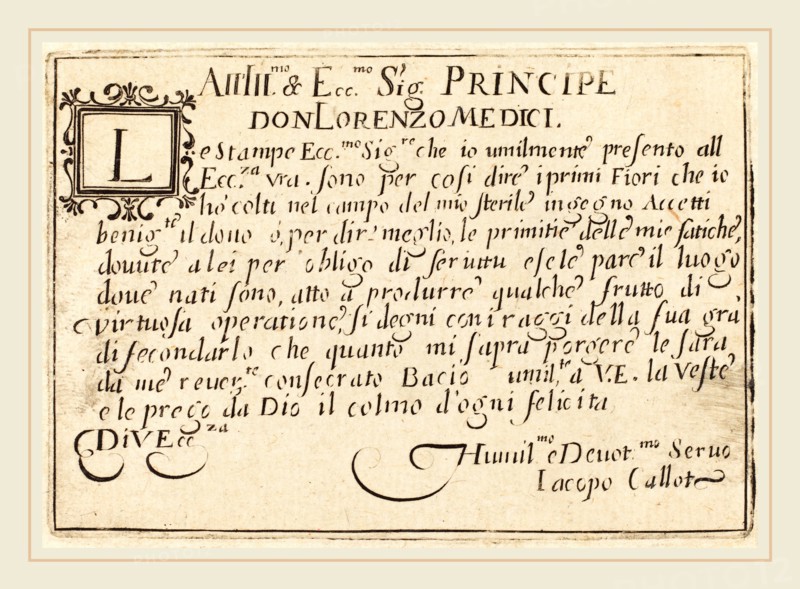 All Ill.mo & Ecc.mo Sig.r PRINCIPE
DON LORENZO MEDICI.
Le Stampe Ecc.mo Sig.re che io umilmente presento all
Ecc.za vra. sono per cosi dire i primi Fiori che io
hò colti nel campo del mio sterile ingegno Accetti
benig.te il dono ò, per dir meglio, le primitie delle mie fatiche,
douute a lei per obligo di seruitu e se le pare il luogo
doue nati sono, atto a produrre qualche frutto di
virtuosa operatione, si degni con i raggi della sua gra
di fecondarlo che quanto mi sapra porgere le sara
da me reuer.te consecrato Bacio umil.te a V.E. la Veste
e le prego da Dio il colmo d'ogni felicita
Di V Ecc.za
Humil.mo e Deuot.mo Seruo
Iacopo Callot